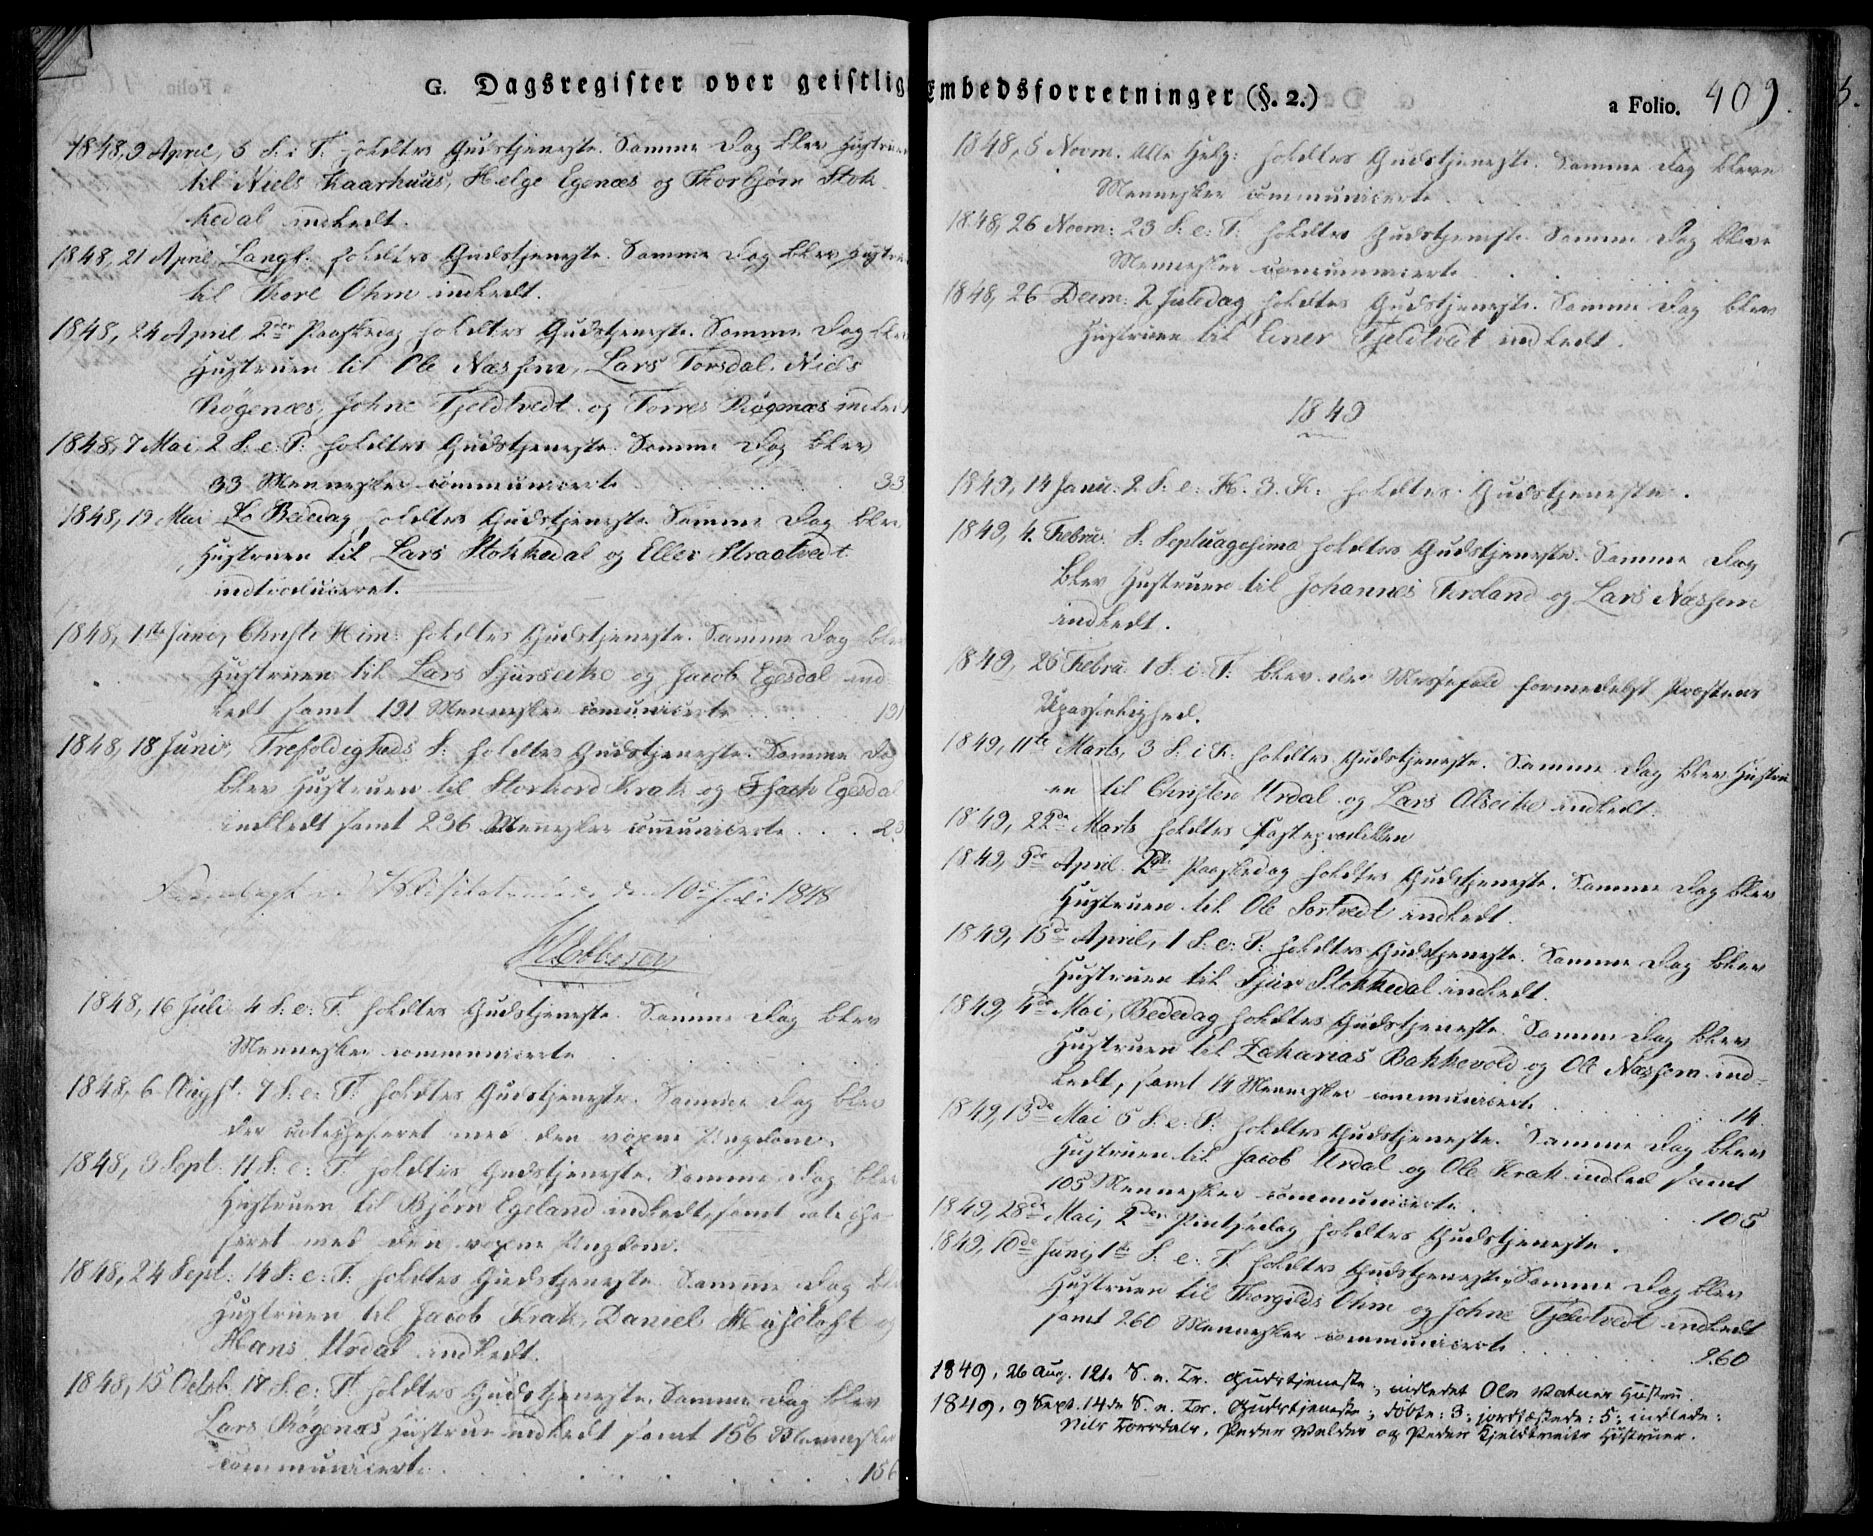 G. Dagsregister over geistlig
1848, 9 April, 5 S. i F. holdtes Gudstjeneste. Samme Dag blev Hustruen
til Niels Kaarhuus, Helge Egenæs og Thorbjørn Stok
kedal indledt.
1848, 21 April, Langf. holdtes Gudstjeneste. Samme Dag blev Hustruen
til Thore Ohm indledt.
1848, 24 April 2den Paaskedag holdtes Gudstjeneste. Samme Dag blev
Hustruen til Ole Næssem, Lars Torsdal, Niels
Røgenæs, Johne Tjeldtvedt og Torres Røgenæs indledt
1848, 7 Mai, 2 S. e. P. holdtes Gudstjeneste. Samme Dag blev
33 Mennesker communicerte . . . 33
1848, 19 Mai Bededag, holdtes Gudstjeneste. Samme Dag blev
Hustruen til Lars Stokkedal og Eller Straatvedt
indtroduceret.
1848, 1ste Juni, Christi Him: holdtes Gudstjeneste. Samme Dag blev
Hustruen til Lars Sjurseike og Jacob Egesdal ind
ledt samt 191 Mennesker comunicerte . . . 191
1848, 18 Juni, Trefoldigheds S: holdtes Gudstjeneste. Samme Dag
blev Hustruen til Storkord Krak og Isach Egesdal
indledt samt 236 Mennesker communicerte . . . 23
Visitatsen den 10de Juli 1848
1848, 16 Juli 4 S. e. T. holdtes Gudstjeneste. Samme Dag blev
Mennesker communicerte . . .
1848, 6 August. 7 S. e. T. holdtes Gudstjeneste. Samme Dag blev
der catechiseret med den voxne Ungdom.
1848, 3 Sept: 11 S. e. T. holdtes Gudstjeneste. Samme Dag blev
Hustruen til Bjørn Egeland indledt, samt cateche
seret med den voxne Ungdom.
1848, 24 Sept: 14 S. e. T. holdtes Gudstjeneste. Samme Dag blev
Hustruen til Jacob Krak, Daniel og
Hans Urdal indledt.
1848, 15 Octob. 17 S. e. T. holdtes Gudstjeneste. Samme Dag blev
Lars Røgenæs Hustrue indledt samt 156 Mennesker
communicerte . . . 156
Embedsforretninger (§. 2.)
a Folio. 409.
1848, 5 Novm. Alle Helg: holdtes Gudstjeneste. Samme Dag bleve
Mennesker communicerte . . .
1848, 26 Novm: 23 S. e. T. holdtes Gudstjeneste. Samme Dag bleve
Mennesker communicerte . . .
1848, 26 Decm: 2 Juledag holdtes Gudstjeneste. Samme Dag blev
Hustruen til Einer Tjeldtvedt indledt.
1849
1849, 14 Janu: 2 S. e. H. 3. K. holdtes Gudstjeneste.
1849, 4. Febru: S. Septuagesima holdtes Gudstjeneste. Samme Dag
blev Hustruen til Johannes Førland og Lars Næssem
indledt.
1849, 25 Febru: 1 S. i F. blev der Messefald formedelst Præstens
Upasselighed.
1849, 11te Marts, 3 S. i F. holdtes Gudstjeneste. Samme Dag blev Hustru
en til Christen Urdal og Lars Alseike indledt.
1849, 22de Marts holdtes Fasteprædiken
1849, 9de April 2den Paaskedag holdtes Gudstjeneste. Samme Dag blev
Hustruen til Ole Sørtvedt indledt.
1849, 15de April, 1 S. e. P. holdtes Gudstjeneste. Samme Dag blev
Hustruen til Sjur Stokkedal indledt.
1849, 4de Mai, Bededag holdtes Gudstjeneste. Samme Dag blev
Hustruen til Zakarias Bakkevold og Ole Næssem ind-
ledt, samt 14 Mennesker communicerte . . . 14
1849, 13de Mai 5 S. e. P. holdtes Gudstjeneste. Samme Dag blev
Hustruen til Jacob Urdal og Ole Krak indled samt
105 Mennesker communicerte . . . 105
1849, 28de Mai, 2den Pintsedag holdtes Gudstjeneste.
1849, 10de Junij 1ste S. e. T. holdtes Gudstjeneste. Samme Dag blev
Hustruen til Thorgilds Ohm og Johne Tjeldtvedt indledt
samt 260 Mennesker communicerte . . . 260
1849, 26 Aug. 12te S. e. Tr. Gudstjeneste; indledet Ole Vatnes Hustru.
1849, 9 Sept. 14de S. e. Tr. Gudstjeneste; døbte: 3; jordfæstede: 5; indlede:
Nils Torsdals, Peder Veldes og Peder Tjeldtveits Hustruer.